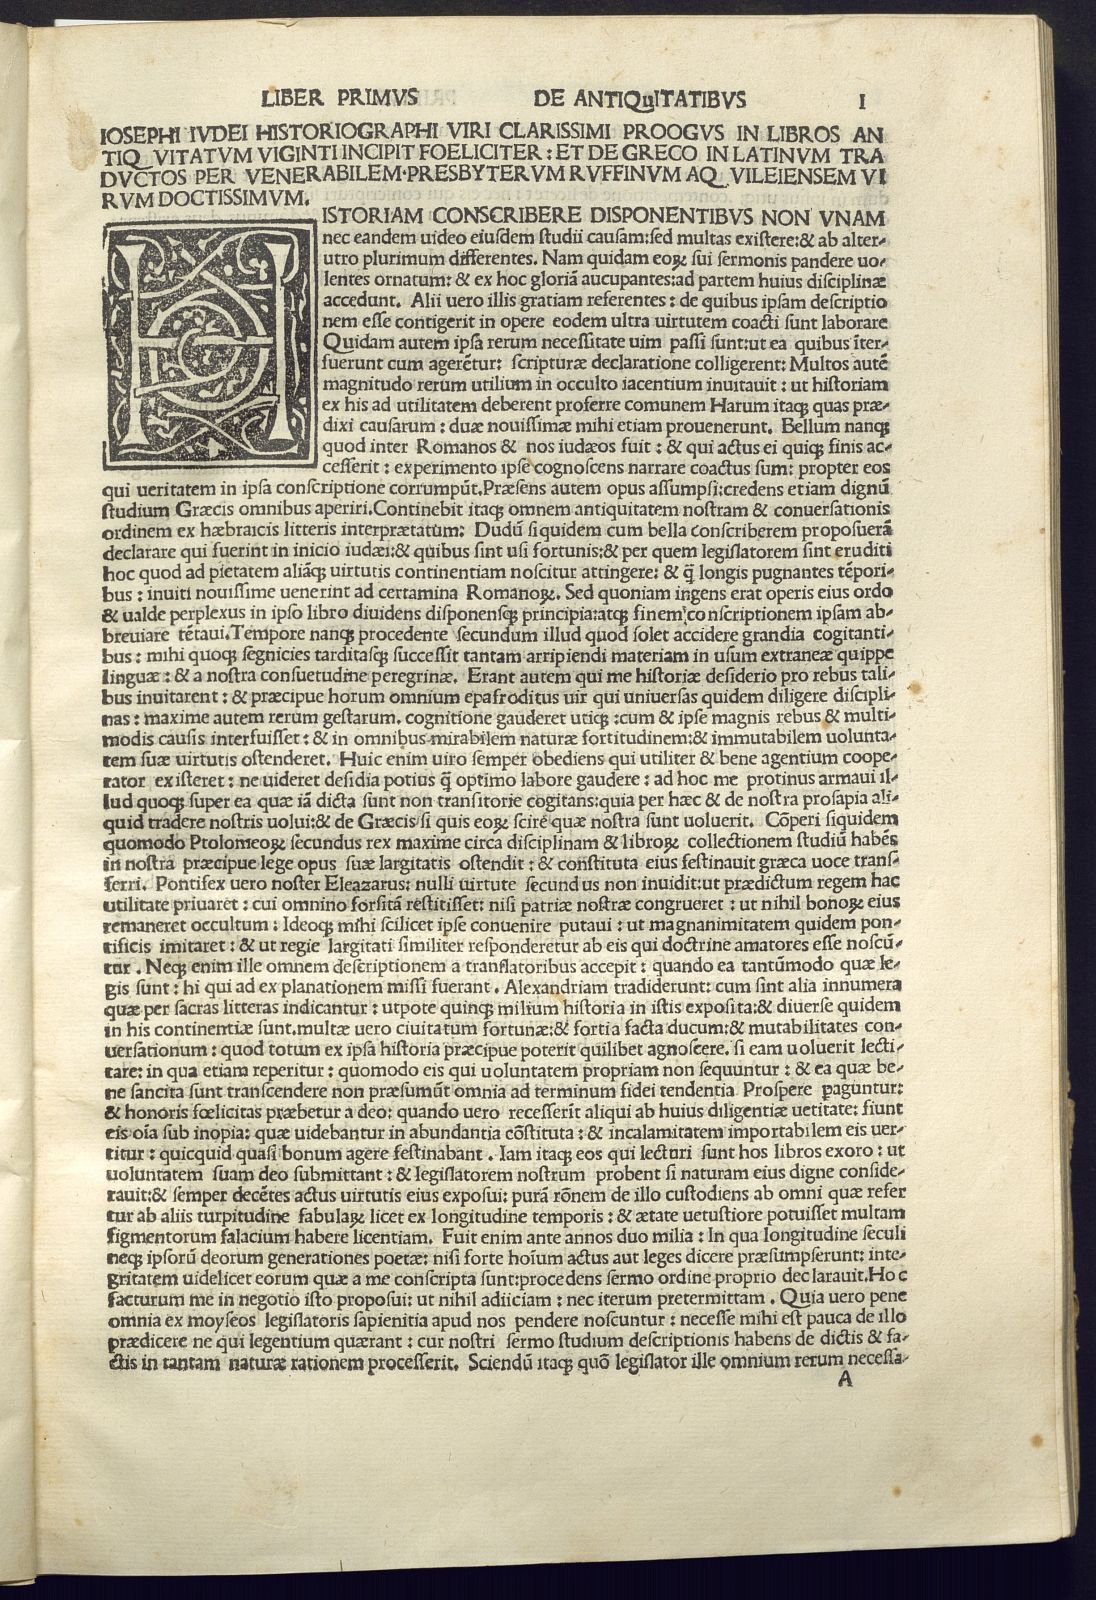 LIBER PRIMVS DE ANTIQuITATIBVS I
IOSEPHI IVDEI HISTORIOGRAPHI VIRI CLARISSIMI PROOGVS IN LIBROS AN
TIQ VITATVM VIGINTI INCIPIT FOELICITER: ET DE GRECO IN LATINVM TRA
DVCTOS PER VENERABILEM·PRESBYTERVM RVFFINVM AQ VILEIENSEM VI
RVM DOCTISSIMVM.
HISTORIAM CONSCRIBERE DISPONENTIBVS NON VNAM
nec eandem uideo eiusdem studii causam:sed multas existere:& ab alter-
utro plurimum differentes. Nam quidam eoꝝ sui sermonis pandere uo-
lentes ornatum: & ex hoc gloriā aucupantes:ad partem huius disciplinæ
accedunt. Alii uero illis gratiam referentes: de quibus ipsam descriptio
nem esse contigerit in opere eodem ultra uirtutem coacti sunt laborare
Quidam autem ipsa rerum necessitate uim passi sunt:ut ea quibus īter-
fuerunt cum agerētur: scripturæ declaratione colligerent: Multos autē
magnitudo rerum utilium in occulto iacentium inuitauit: ut historiam
ex his ad utilitatem deberent proferre comunem Harum itaqꝫ quas præ-
dixi causarum: duæ nouissimæ mihi etiam prouenerunt. Bellum nanqꝫ
quod inter Romanos & nos iudæos fuit: & qui actus ei quiqꝫ finis ac-
cesserit: experimento ipse cognoscens narrare coactus sum: propter eos
qui ueritatem in ipsa conscriptione corrumpūt.Præsens autem opus assumpsi:credens etiam dignū
studium Græcis omnibus aperiri.Continebit itaqꝫ omnem antiquitatem nostram & conuersationis
ordinem ex hæbraicis litteris interprætatum: Dudū siquidem cum bella conscriberem proposuerā
declarare qui fuerint in inicio iudæi:& quibus sint usi fortunis:& per quem legislatorem sint eruditi
hoc quod ad pietatem aliāqꝫ uirtutis continentiam noscitur attingere: & q̄ longis pugnantes tēpori-
bus: inuiti nouissime uenerint ad certamina Romanoꝝ. Sed quoniam ingens erat operis eius ordo
& ualde perplexus in ipso libro diuidens disponensqꝫ principia:atqꝫ finem conscriptionem ipsam ab-
breuiare tētaui.Tempore nanqꝫ procedente secundum illud quod solet accidere grandia cogitanti-
bus: mihi quoqꝫ segnicies tarditasqꝫ successit tantam arripiendi materiam in usum extraneæ quippe
linguæ: & a nostra consuetudine peregrinæ. Erant autem qui me historiæ desiderio pro rebus tali-
bus inuitarent: & præcipue horum omnium epafroditus uir qui uniuersas quidem diligere discipli-
nas: maxime autem rerum gestarum. cognitione gauderet utiqꝫ :cum & ipse magnis rebus & multi-
modis causis interfuisset: & in omnibus mirabilem naturæ fortitudinem:& immutabilem uolunta-
tem suæ uirtutis ostenderet. Huic enim uiro semper obediens qui utiliter & bene agentium coope-
rator existeret: ne uideret desidia potius q̄ optimo labore gaudere: ad hoc me protinus armaui il-
lud quoqꝫ super ea quæ iā dicta sunt non transitorie cogitans:quia per hæc & de nostra prosapia ali-
quid tradere nostris uolui:& de Græcis si quis eoꝝ scire quæ nostra sunt uoluerit. Cōperi siquidem
quomodo Ptolomeoꝝ secundus rex maxime circa disciplinam & libroꝝ collectionem studiū habēs
in nostra præcipue lege opus suæ largitatis ostendit: & constituta eius festinauit græca uoce trans-
ferri. Pontifex uero noster Eleazarus: nulli uirtute secundus non inuidit:ut prædictum regem hac
utilitate priuaret: cui omnino forsitā restitisset: nisi patriæ nostræ congrueret: ut nihil bonoꝝ eius
remaneret occultum: Ideoqꝫ mihi scilicet ipse conuenire putaui: ut magnanimitatem quidem pon-
tificis imitaret: & ut regie largitati similiter responderetur ab eis qui doctrine amatores esse noscū-
tur. Neqꝫ enim ille omnem descriptionem a translatoribus accepit: quando ea tantūmodo quæ le-
gis sunt: hi qui ad ex planationem missi fuerant. Alexandriam tradiderunt: cum sint alia innumera
quæ per sacras litteras indicantur: utpote quinqꝫ milium historia in istis exposita:& diuerse quidem
in his continentiæ sunt.multæ uero ciuitatum fortunæ:& fortia facta ducum:& mutabilitates con-
uersationum: quod totum ex ipsa historia præcipue poterit quilibet agnoscere. si eam uoluerit lecti-
tare: in qua etiam reperitur: quomodo eis qui uoluntatem propriam non sequuntur: & ea quæ be-
ne sancita sunt transcendere non præsumūt omnia ad terminum fidei tendentia Prospere ꝑaguntur:
& honoris fœlicitas præbetur a deo: quando uero recesserīt aliqui ab huius diligentiæ uetitate: fiunt
eis oīa sub inopia: quæ uidebantur in abundantia cōstituta: & incalamitatem importabilem eis uer-
titur: quicquid quasi bonum agere festinabant. Iam itaqꝫ eos qui lecturi sunt hos libros exoro: ut
uoluntatem suam deo submittant: & legislatorem nostrum probent si naturam eius digne conside-
rauit:& semper decētes actus uirtutis eius exposui: purā rōnem de illo custodiens ab omni quæ refer
tur ab aliis turpitudine fabulaꝝ licet ex longitudine temporis: & ætate uetustiore potuisset multam
figmentorum falacium habere licentiam. Fuit enim ante annos duo milia: In qua longitudine seculi
neqꝫ ipsorū deorum generationes poetæ: nisi forte hoīum actus aut leges dicere præsumpserunt: inte-
gritatem uidelicet eorum quæ a me conscripta sunt:procedens sermo ordine proprio declarauit.Hoc
facturum me in negotio isto proposui: ut nihil adiiciam: nec iterum pretermittam. Quia uero pene
omnia ex moyseos legislatoris sapienitia apud nos pendere noscuntur: necesse mihi est pauca de illo
prædicere ne qui legentium quærant: cur nostri sermo studium descriptionis habens de dictis & fa-
ctis in tantam naturæ rationem processerit. Sciendū itaqꝫ quō legislator ille omnium rerum necessa-
A